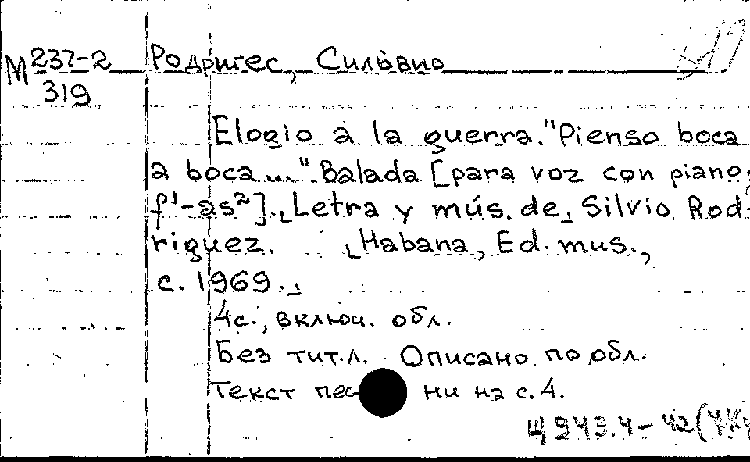 М 237-2 Родригес, Сильвио
319
Elogio a la guerra. "Pienso boca
a boca...". Balada [para voz con piano,
f¹-as²]. Letra y mús. de Silvio Rod-
riguez. Habana, Ed. mus.,
c. 1969.
4с., включ. обл.
Без тит.л. Описано по обл.
Текст песни на с.4.
Щ943.4-42(7Ку